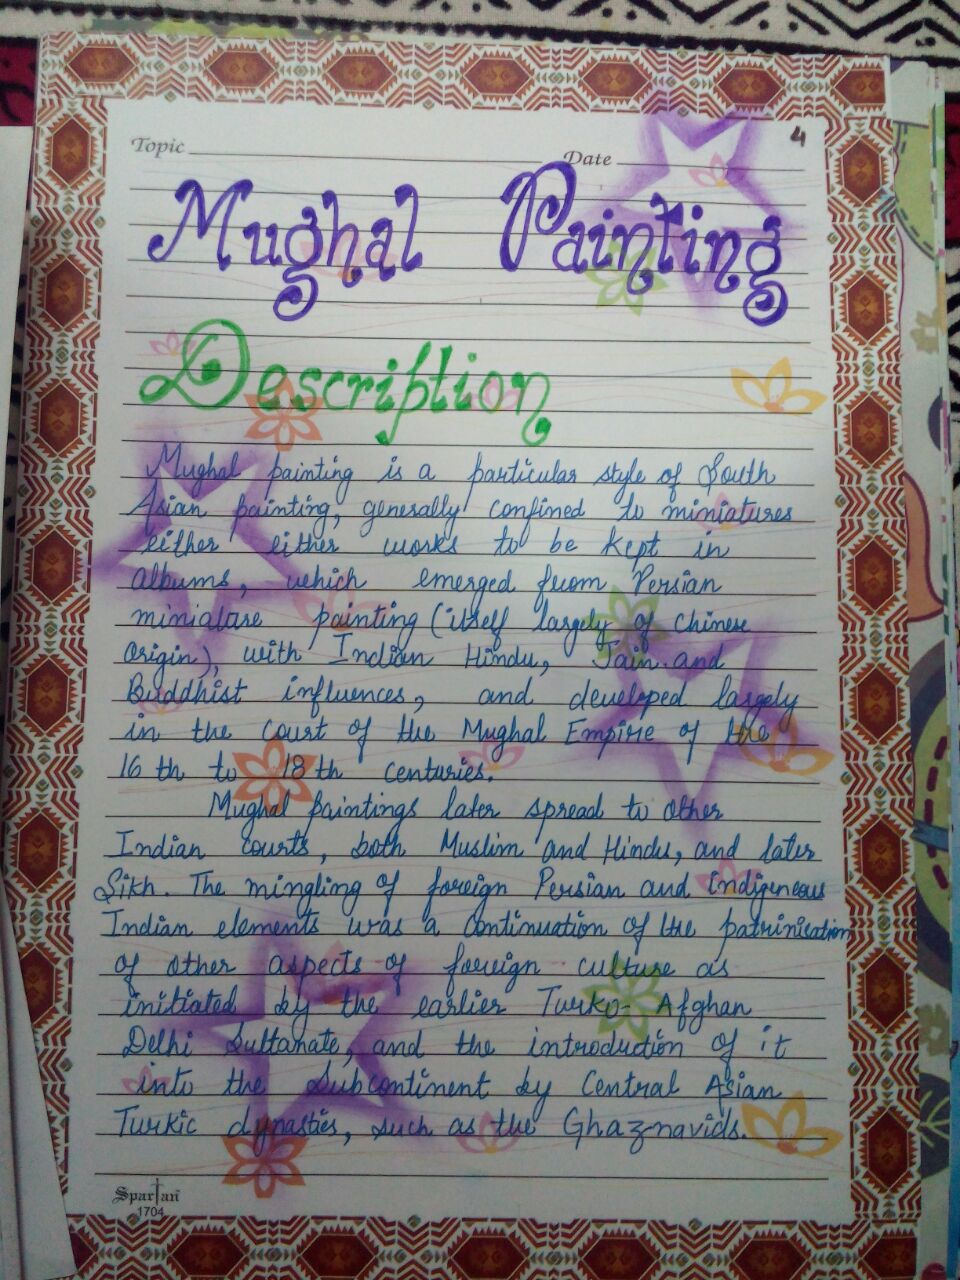 4
Topic Date
Mughal Painting
Description
Mughal painting is a particular style of South
Asian painting, generally confined to miniatures
either either works to be kept in
albums, which emerged from Persian
miniature painting (itself largely of Chinese
origin), with Indian Hindu, Jain and
Buddhist influences, and developed largely
in the court of the Mughal Empire of the
16 th to 18 th centuries.
Mughal paintings later spread to other
Indian courts, both Muslim and Hindu, and later
Sikh. The mingling of foreign Persian and indigeneous
Indian elements was a continuation of the patrinisation
of other aspects of foreign culture as
initiated by the earlier Turko-Afghan
Delhi Sultanate, and the introduction of it
into the Subcontinent by Central Asian
Turkic dynasties, such as the Ghaznavids.
Spartan
1704